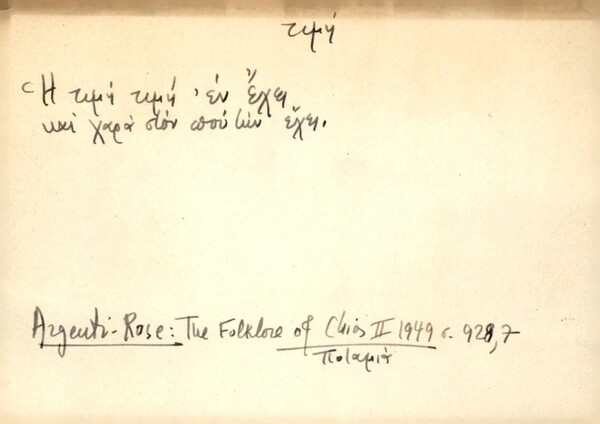 τιμή
Ἡ τιμή τιμή 'έν ἔχει
καί χαρά στόν ἀπού τήν ἔχει.
Argenti-Rose: The Folklore of Chios II 1949 σ. 928,7
Ποταμιά